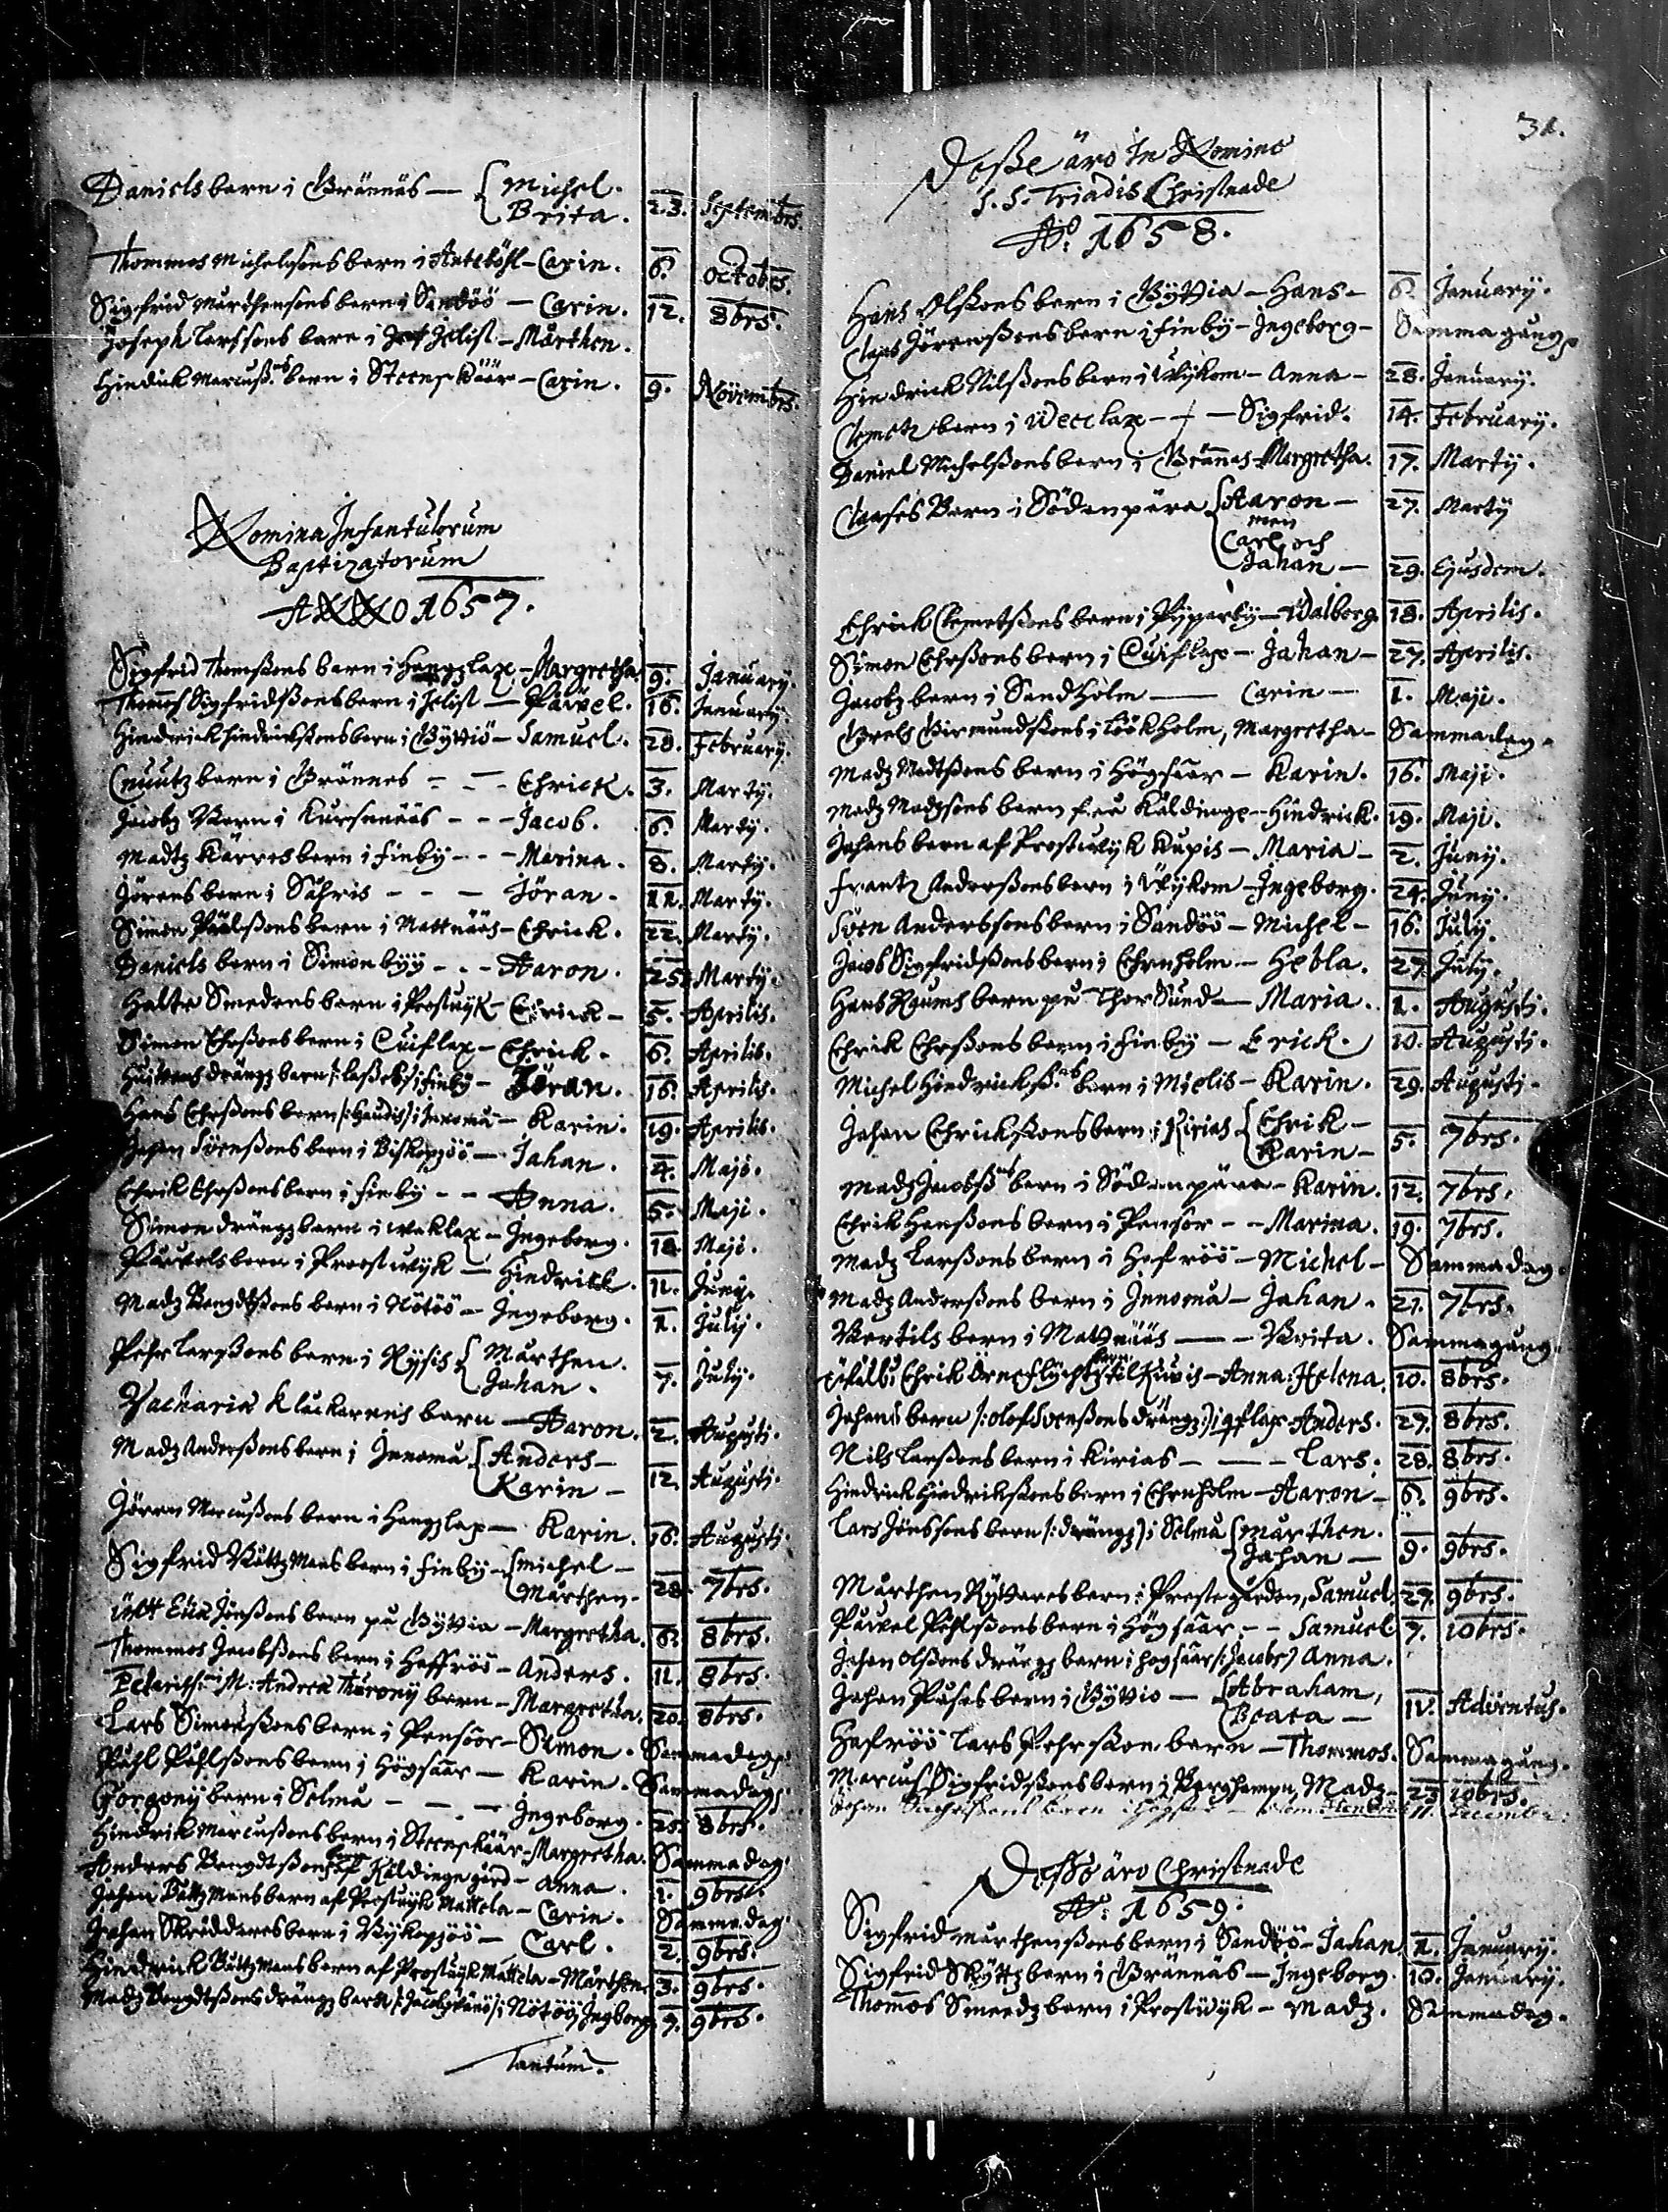 Daniels barn i Brännäs — Michel.
Brita. 23. Septembrs.
Thommos Michelsons barn i Anteböhl - Carin. 6. Octobrs.
Sigfrid Mårthensons barn i Sandöö — Carin. 12. 8brs.
Joseph Larssons barn i Jelist - Mårthen.
Hindrick Marcuss. barn i Steenskäär - Carin. 9. Novembrs.
Nomina Infantulorum
Baptizatorum
ANNO 1657.
Sigfrid Thomsons barn i Hangzlax - Margretha 9. January.
Thomos Sigfridssons barn i Jelist — Påvel. 16. January.
Hindrick Hindrickssons barn i Byttiö - Samuel. 28. February.
Cnuutz barn i Brännes - — - Ehrick. 3. Marty.
Jacobz Barn i Kursnääs - - - Jacob. 6. Marty.
Madtz Kärres barn i Finby - - - Marina. 8. Marty.
Jörens barn i Säfris - - - Jöran. 11. Marty.
Simon Påålssons barn i Mattnääs - Ehrick. 22. Marty.
Daniels barn i Simonbyy - - - Aaron. 25. Marty.
Halte Smedens barn i Prostvyk - Ehrick - 5. Aprilis.
Simon Ehrssons barn i Cuiflax - Ehrick. 6. Aprilis.
drängz barn i Finby - Jöran. 16. Aprilis.
Hans Ehrssons barn i Innomå - Karin. 19. Aprilis.
Johan Svenssons barn i Biskopzöö — Jahan. 4. Maji.
Ehrik Ehrssons barn i Finby - - Anna. 5. Maji.
Simon drängz barn i Weklax - Ingeborg. 18. Maji.
Påvels barn i Proostwyk — Hindrick. 11. Juny.
Madz Bengdtssons barn i Nötöö - Ingeborg. 1. July.
Pehr Larssons barn i Rysis Mårthen.
Jahan. 7. July.
Zacharia Klåckarens barn — Aaron. 2. Augusti.
Madz Anderssons barn i Innomå Anders -
Karin - 12. Augusti.
Jören Marcussons barn i Hangzlax — Karin. 16. Augusti.
Sigfrid Båttzmans barn i Finby - Michel -
Mårthen - 28. 7brs.
Jönssons barn på Byttia - Margretha. 6. 8brs.
Thommos Jacobssons barn i Haffröö - Anders. 11. 8brs.
M: Andreæ Thurony barn - Margretha. 20. 8brs.
Lars Simonssons barn i Pensoor - Simon. Sammadags.
Påhl Påhlssons barn i Högsaar — Karin. Sammadags.
Gorgony barn i Selmå - — - Ingeborg. 25. 8brs.
Hindrik Marcussons barn i Steenskäär - Margretha. Sammadag.
Anders Bengdtssons barn af Käldinge gård - Anna. 1. 9brs.
Johan Båttzmans barn af Prostwyk Mattela - Carin. Sammadag.
Johan Skräddares barn i Byskopzöö — Carl. 2. 9brs.
Hindrick Båttzmans barn af Prostwyk Mattela - Mårthen. 3. 9brs.
Madz Bengdtssons drängz barn i Nötöö Ingborg 7. 9brs.
Tantum.
31.
Desse äro In Nomine
S. S. Triadis Christnade
Ao: 1658.
Hans Olssons barn i Byttia - Hans - 6. January.
Claas Jörenssons barn i Finby - Ingeborg - Samma gång.
Hindrick Nilssons barn i Wykom - Anna - 28. January.
Clemetz barn i Wecclax - + — Sigfrid. 14. February.
Daniel Michelssons barn i Brännäs - Margretha. 17. Marty.
Claases Barn i Södanpära Aaron — 27. Marty
men
Carl och
Jahan — 29. Ejusdem.
Ehrick Clemetssons barn i Pyparby - Walborg. 18. Aprilis.
Simon Ehrssons barn i Cuiflax - Jahan - 27. Aprilis.
Jacobz barn i Sandholm — Carin — 1. Maji.
Brels Birmundssons i Löökholm, Margretha - Sammadag.
Madz Madtssons barn i Högsaar - Karin. 16. Maji.
Madz Madzsons barn från Käldinge - Hindrick. 19. Maji.
Johans barn af Prostwyk Kupis — Maria — 2. Juny.
Frantz Anderssons barn i Wykom - Ingeborg. 24. Juny.
Sven Anderssons barn i Sandöö - Michel - 16. July.
Jacob Sigfridssons barn i Ehrnholm - Hebla. 27. July.
Hans Raums barn på Thor Sund — Maria. 1. Augusti.
Ehrik Ehrssons barn i Finby - Erick. 10. Augusti.
Michel Hindrickss. barn i Mielis - Karin. 29. Augusti.
Johan Ehrickssons barn i Kirias Ehrik -
Karin - 5. 7brs.
Madz Jacobss barn i Södanpära - Karin. 12. 7brs.
Ehrik Hanssons barn i Pensor - - Marina. 19. 7brs.
Madz Larssons barn i Hafröö - Michel - Sammadag.
Madz Anderssons barn i Innomå - Jahan. 21. 7brs.
Bertils barn i Mattnääs — - Brita. Sammagång.
Ehrik Örneflychtz barn - Anna: Helena. 10. 8brs.
Johans barn /: Olof Svenssons drängz :/ Anders. 27. 8brs.
Nils Larssons barn i Kirias — — - Lars. 28. 8brs.
Hindrick Hindrikssons barn i Ehrnholm - Aaron - 6. 9brs.
Lars Jönssons barn /: drängz) i Selmå Mårthen.
Jahan — 9. 9brs.
Mårthen Ryttares barn i Prestegården, Samuel. 27. 9brs.
Påvel Påhlssons barn i Högsaar - - Samuel 7. 10brs.
Johan Olssons drängz barn i Högsaar /: Jacobs) Anna.
Johan Påfses barn i Byttio — Abraham,
Beata — IV. Adventus.
Hafröö Lars Pehrsson barn - Thommos. Sammagång.
Marcus Sigfridssons barn i Berghamn, Madz - 23 10brs.
11. Decembr:
Desse äro Christnade
Ao: 1659.
Sigfrid Mårthenssons barn i Sandöö - Jahan 1. January.
Sigfrid Skyttz barn i Brännäs — Ingeborg. 10. January.
Thomos Smeedz barn i Prostwyk - Madz. Sammadag.